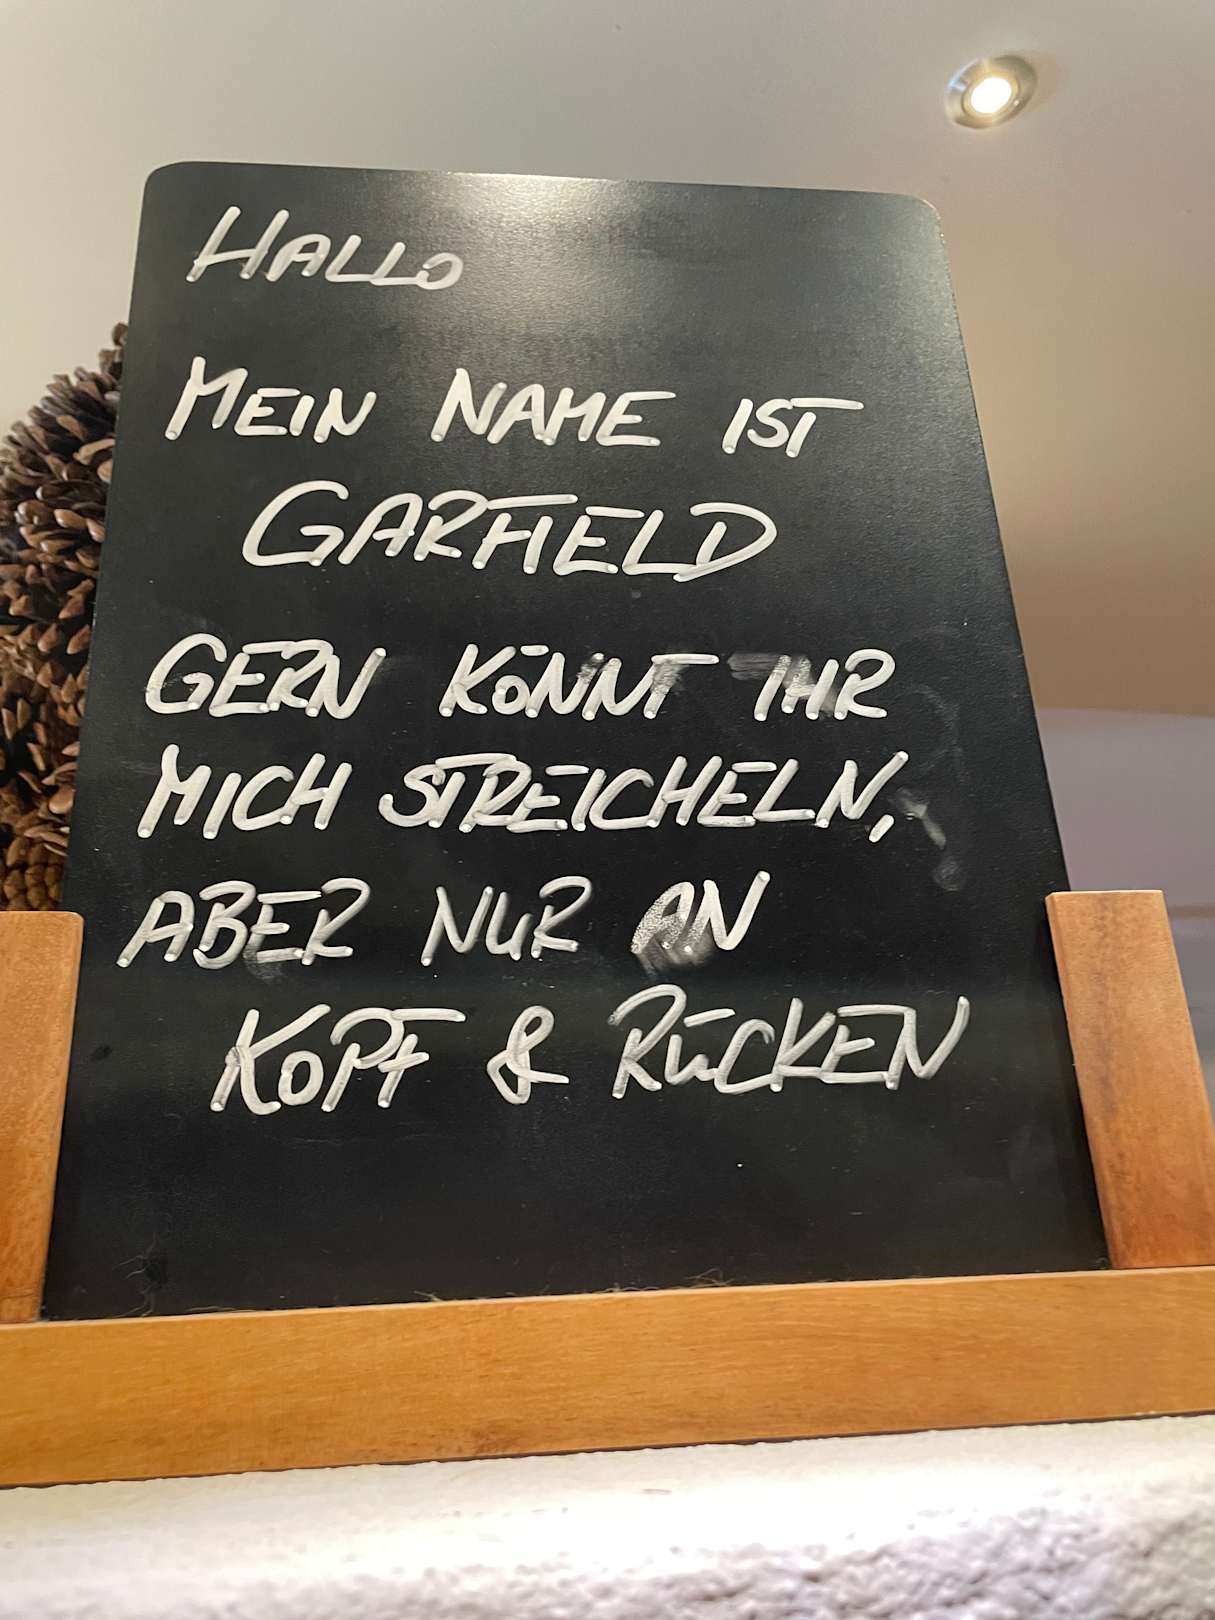 HALLO
MEIN NAME IST
GARFIELD
GERN KÖNNT IHR
MICH STREICHELN,
ABER NUR AN
KOPF & RÜCKEN